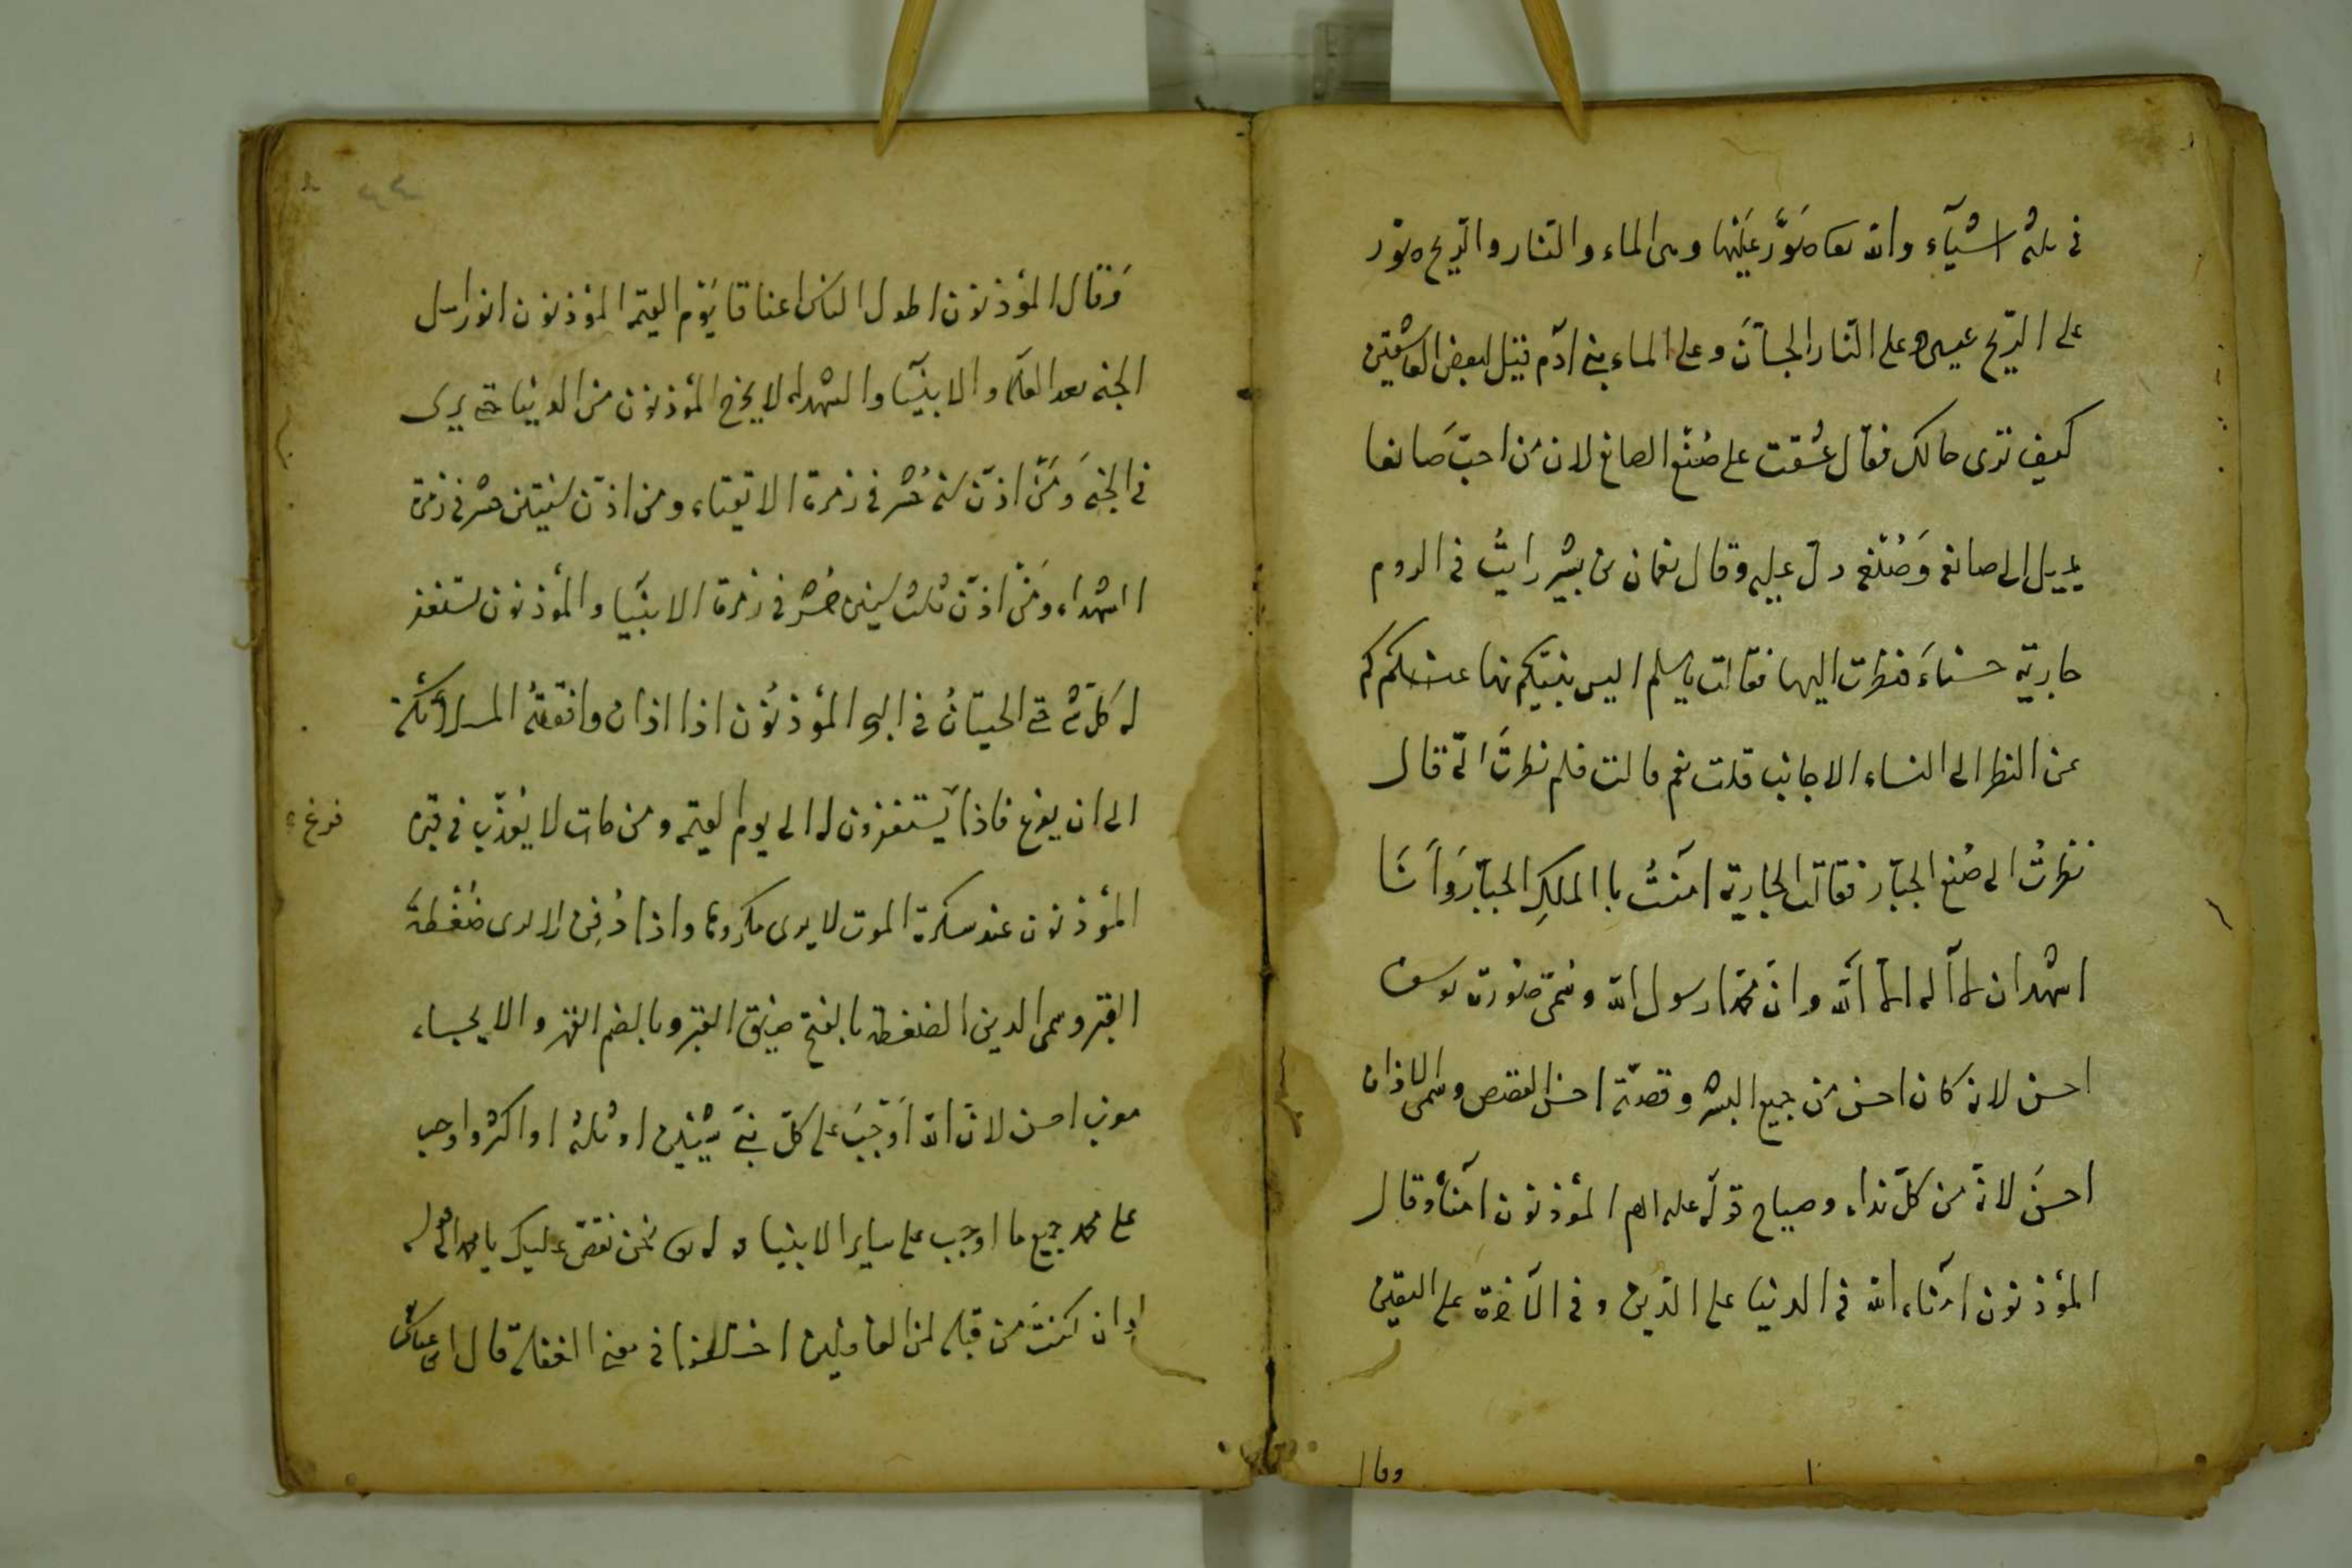 في ثلثة اشيآء والله تعا صَوَّر عَلَيْها وهى الماء والنار والرّيح صوّر
على الرّيح عيسى وعلى النار الجآنّ وعلى الماء بنى ادم قيل لبعض العاشقين
كيف ترى حالك فقال عشقت على صُنع الصانع لان مَن احبّ صَانعا
يميل الى صانعه وَصُنْعُه دلّ عليه وقال نعمان بن بشير رايتُ في الروم
جارية حسناءَ فنظرت اليها فقالت يا مسلم اليس نبيّكم نهاكم
عن النظر الى النساء الاجانب قلت نعم قالت فلم نظرتَ الىّ قال
نظرتُ الى صُنع الجبّار فقالت الجارية امَنتُ با الملكِ الجبّار وَاَنَا
اشهد ان لآ اله الا الله وانّ محمدا رسول الله وسمّى صورة يوسف
احسن لانه كان احسن من جميع البشر وقصته احسن القصص وسمى الاذان
احسنَ لانه من كلّ نداء وصياح قوله عليه السلام المؤذنون امناءُ وقال
المؤذنون امناء الله في الدنيا على الدّين وفى الآخرة على اليقين
وقال
وَقال المؤذنون اطول الناس اعناقا يَوْم القيمة المؤذنون
الجنة بعد العلمآء والانبيآء والشهداء لا يخرج المؤذنون من الدنيا حتى يرى
في الجنة وَمَنْ اذّن سنة حُشر في زمرة الاتقياء ومن اذّن سنيتن حشر في زمرة
الشهداء ومَنْ اذّن ثلث سنين حُشر في زمرة الانبيآء والمؤذنون تستغفر
له كلّ شئ حتى الحيتانُ في البحر المؤذنُون اذا اذان وافقتهُ الملائكة
الى ان يفرغ فاذا يستغفرون له الى يوم القيمة ومن مات لا يُعذّب في قبره
فرغ
المؤذنون عند سكرة الموت لا يرى مكروها واذا دُفِن لا يرى ضُغْطةَ
القبر وسمى الدين الضغطة بالفتح ضيق القبر وبالضم القهر والايجاء
احسن لانّ الله اَوْجَبَ على كلّ نبىّ شيئين او ثلثة او اكثر واوجب
على محمد جميع ما اوجب على ساير الانبياء نحن نقصّ عليك يا محمد
وان كنتَ من قبله لمن الغافلين في معنى الغفلة قال ابن عباس